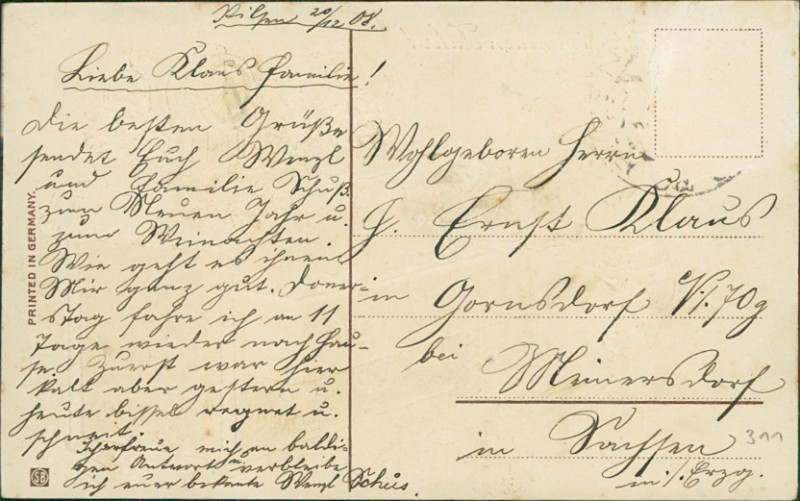 Pilsen 20/12 08.
Liebe Klaus Familie!
Die besten Grüße
sendet Euch Wenzl
und Familie Schuß
zum Neuen Jahr u.
zum Weinachten.
Wie geht es ihnen
Mir ganz gut. Doner-
stag fahre ich an 11
Tage wieder nach Hau-
se. Zuerst war hier
kalt aber gestern u.
heute bissel regnet u.
schneit.
Ich erfreue mich an baldi-
gen Antwort verbleibe
ich euer bekante Wenzl Schus.
PRINTED IN GERMANY.
SB
Wohlgeboren Herrn
G. Ernst Klaus
in Gornsdorf N. 70g
bei
Meinersdorf
in Sachsen
in /. Erzg.
311